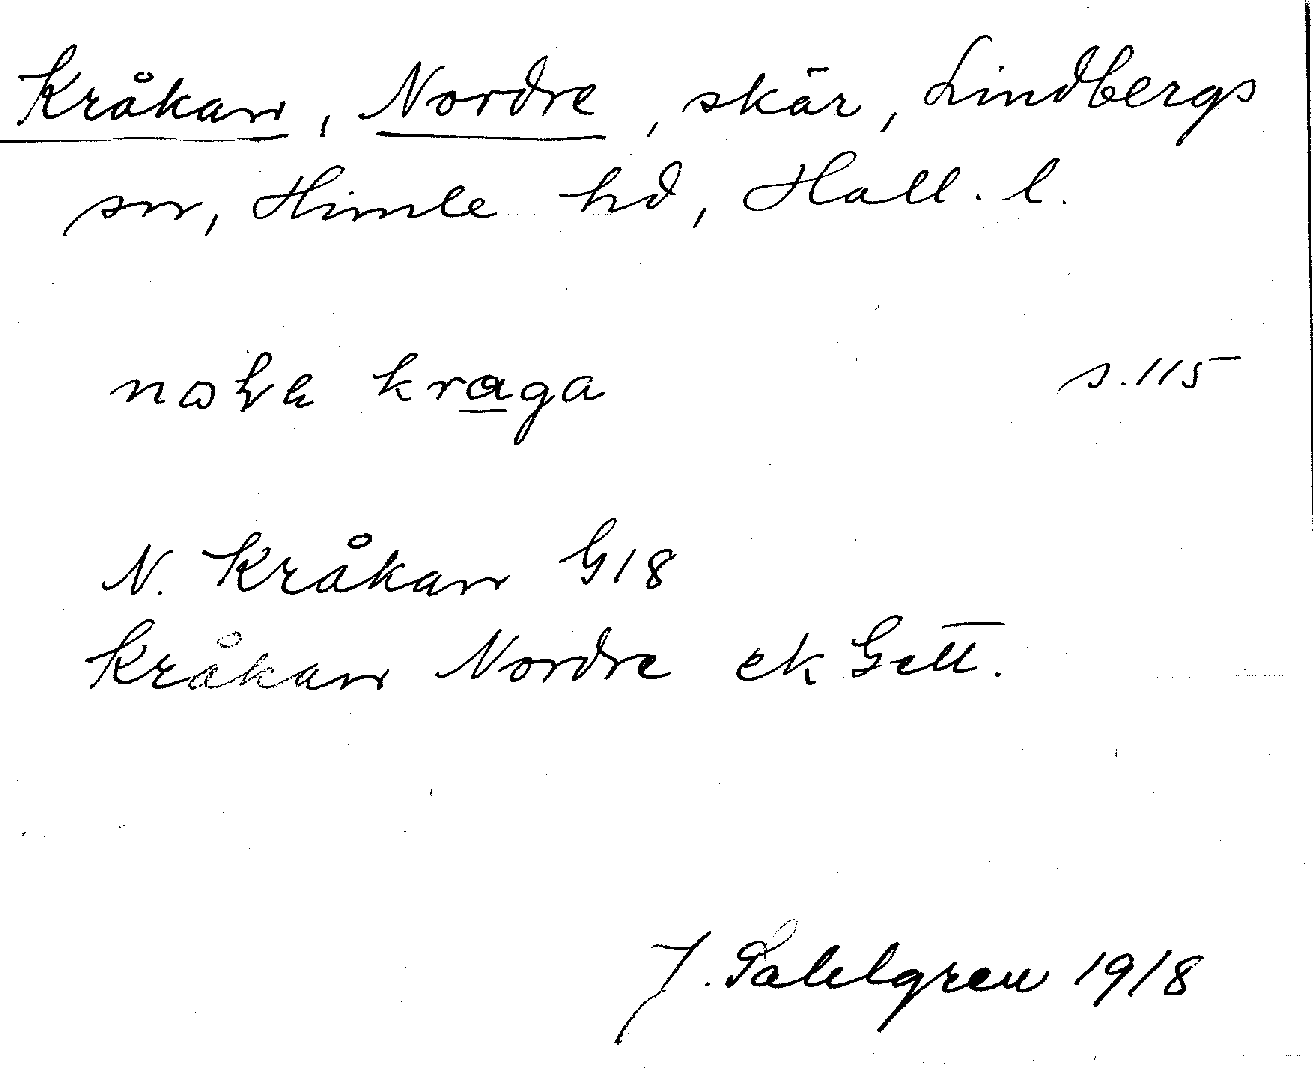 Kråkan, Nordre, skär, Lindbergs
sn, Himle hd, Hall. l.
kraga s. 115
N. Kråkan G18
Kråkan Nordre ek Gett.
J. Sahlgren 1918